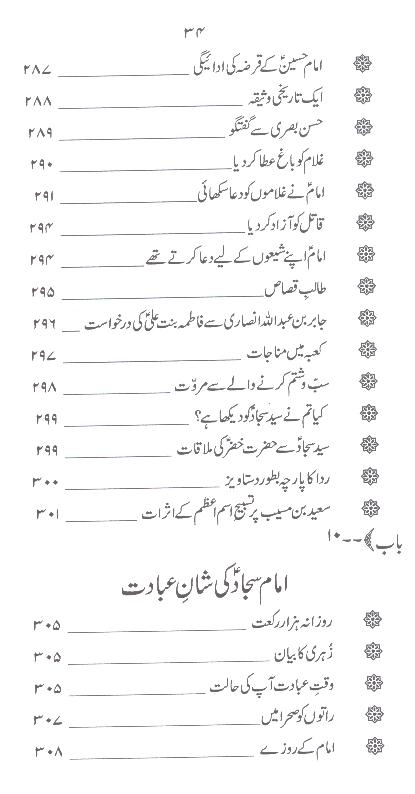 ۳۴
امام حسینؑ کے قرضہ کی ادائیگی ۲۸۷
ایک تاریخی وثیقہ ۲۸۸
حسن بصری سے گفتگو ۲۸۹
غلام کو باغ عطا کر دیا ۲۹۰
امامؑ نے غلاموں کو دعا سکھائی ۲۹۱
قاتل کو آزاد کر دیا ۲۹۴
امامؑ اپنے شیعوں کے لیے دعا کرتے تھے ۲۹۴
طالبِ قصاص ۲۹۵
جابر بن عبداللہ انصاری سے فاطمہ بنت علیؑ کی درخواست ۲۹۶
کعبہ میں مناجات ۲۹۷
سبّ و شتم کرنے والے سے مروّت ۲۹۸
کیا تم نے سید سجادؑ کو دیکھا ہے؟ ۲۹۹
سید سجادؑ سے حضرت خضرؑ کی ملاقات ۲۹۹
ردا کا پارچہ بطور دستاویز ۳۰۰
سعید بن مسیب پر تسبیح اسم اعظم کے اثرات ۳۰۱
باب ﴾--۱۰
امام سجادؑ کی شانِ عبادت
روزانہ ہزار رکعت ۳۰۵
زُہری کا بیان ۳۰۵
وقتِ عبادت آپ کی حالت ۳۰۵
راتوں کو صحرا میں ۳۰۷
امام کے روزے ۳۰۸